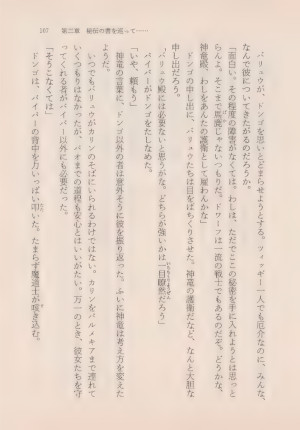 167 第三章 秘伝の書を巡って……
バリュウが、ドンゴを思いとどまらせようとする。ツィッギー一人でも厄介なのに、みんな、
なんで彼についてきたがるのだろうか。
「面白い。その程度の障害がなくては。わしは、ただでここの秘密を手に入れようとは思っと
らんよ。そこまで馬鹿じゃないつもりだ。ドワーフは一流の戦士でもあるのだぞ。どうかな、
神竜殿。わしをあんたの護衛として雇わんかな」
ドンゴの申し出に、バリュウたちは目をぱちくりさせた。神竜の護衛だなど、なんと大胆な
申し出だろう。
「バリュウ殿には必要ないと思うがな。どちらが強いかは一目瞭然だろう」
いちもくりょうぜん
パイパーがドンゴをたしなめた。
「いや、頼もう」
神竜の言葉に、ドンゴ以外の者は意外そうに彼を振り返った。ふいに神竜は考え方を変えた
ようだった。
いつでもバリュウがカリンのそばにいられるわけではない。カリンをパルメキアまで連れて
いくつもりはなかったが、パオまでの道程も安心とはいいがたい。万一のとき、彼女たちを守
ってくれる者がパイパー以外にも必要だった。
「そうこなくては」
ドンゴは、パイパーの背中を力いっぱい叩いた。たまらず魔道士が咳き込む。